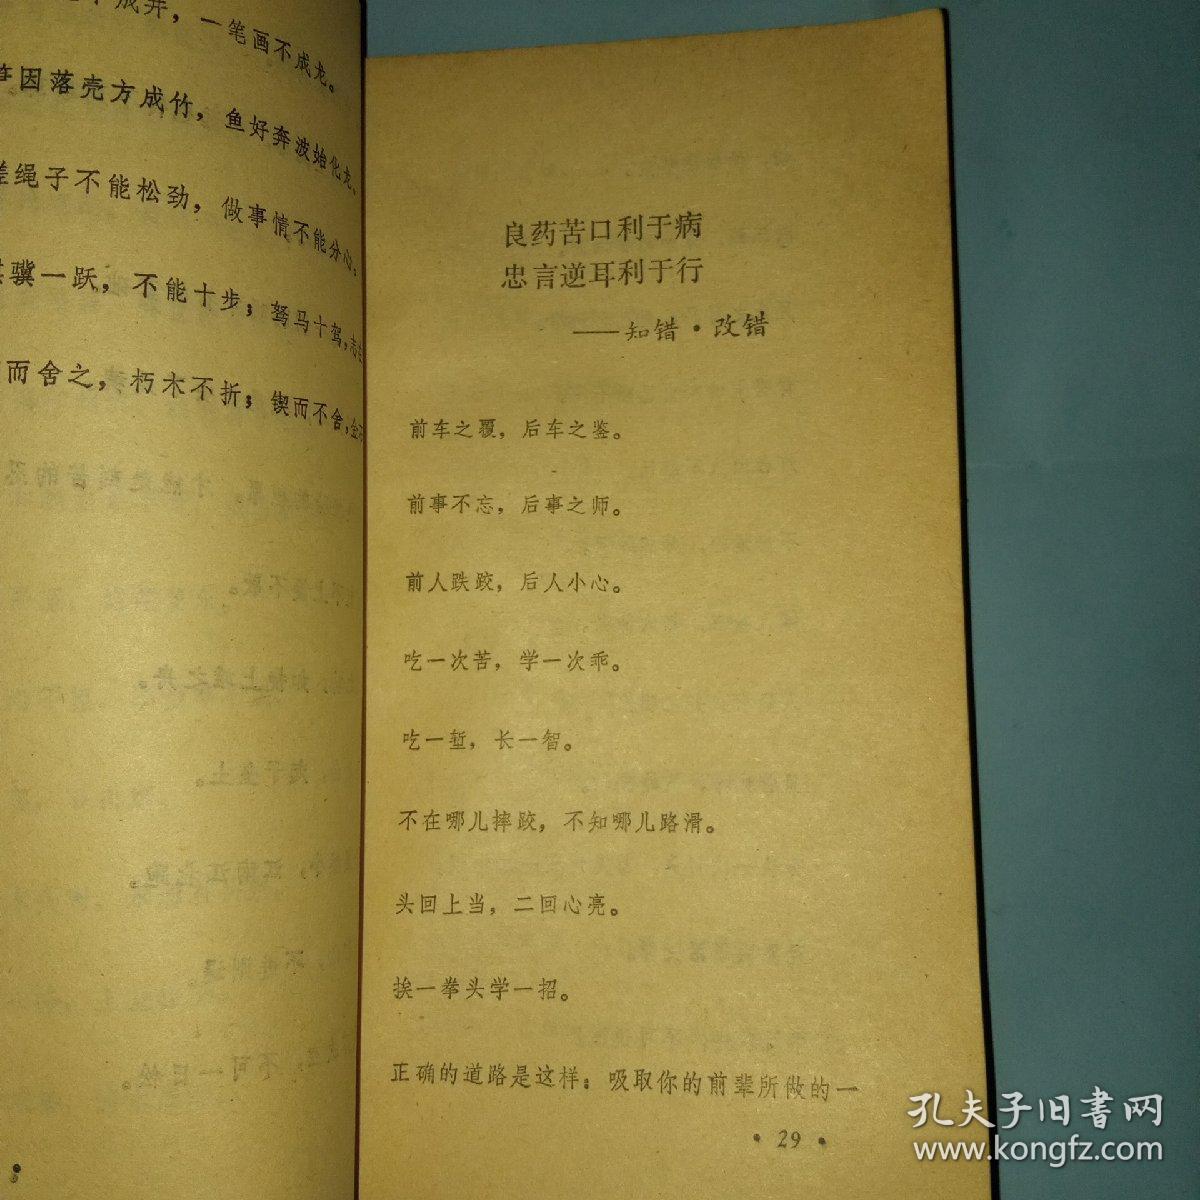 成井，一笔画不成龙。
因落壳方成竹，鱼好奔波始化龙。
绳子不能松劲，做事情不能分心。
骥一跃，不能十步；驽马十驾，
而舍之，朽木不折；锲而不舍，金
良药苦口利于病
忠言逆耳利于行
——知错·改错
前车之覆，后车之鉴。
前事不忘，后事之师。
前人跌跤，后人小心。
吃一次苦，学一次乖。
吃一堑，长一智。
不在哪儿摔跤，不知哪儿路滑。
头回上当，二回心亮。
挨一拳头学一招。
正确的道路是这样：吸取你的前辈所做的一
·29·
孔夫子旧书网
www.kongfz.com